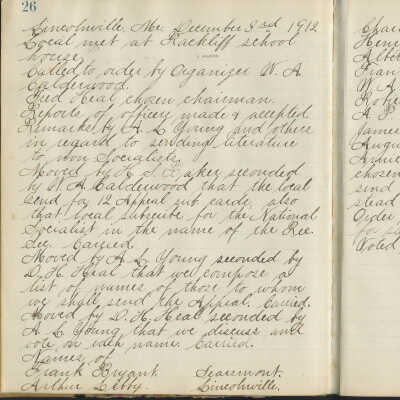 26
Lincolnville, Me. December 3rd 1912
Local met at Rackliff school
house.
Called to order by Organizer W. A.
Calderwood.
Fred Heal chosen chairman.
Reports of officers made & accepted
Remarks by A. L. Young and others
in regard to sending literature
to non Socialists.
Moved by H. S. seconded
by W. A. Calderwood that the local
send for 12 Appeal sub cards, also
that local subscribe for the National
Socialist in the name of the Rec.
Sec. Carried.
Moved by A. L. Young seconded by
D. H. Heal that we compose a
list of names of those to whom
we shall send the Appeal. Carried.
Moved by D. H. Heal seconded by
A. L. Young that we discuss and
vote on each name. Carried.
Names of
Frank Bryant Searsmont.
Arthur Libby. Lincolnville.
Fran
W. A
A. P
James
Augu
Annie
chosen
send
stead
Order
for
Voted